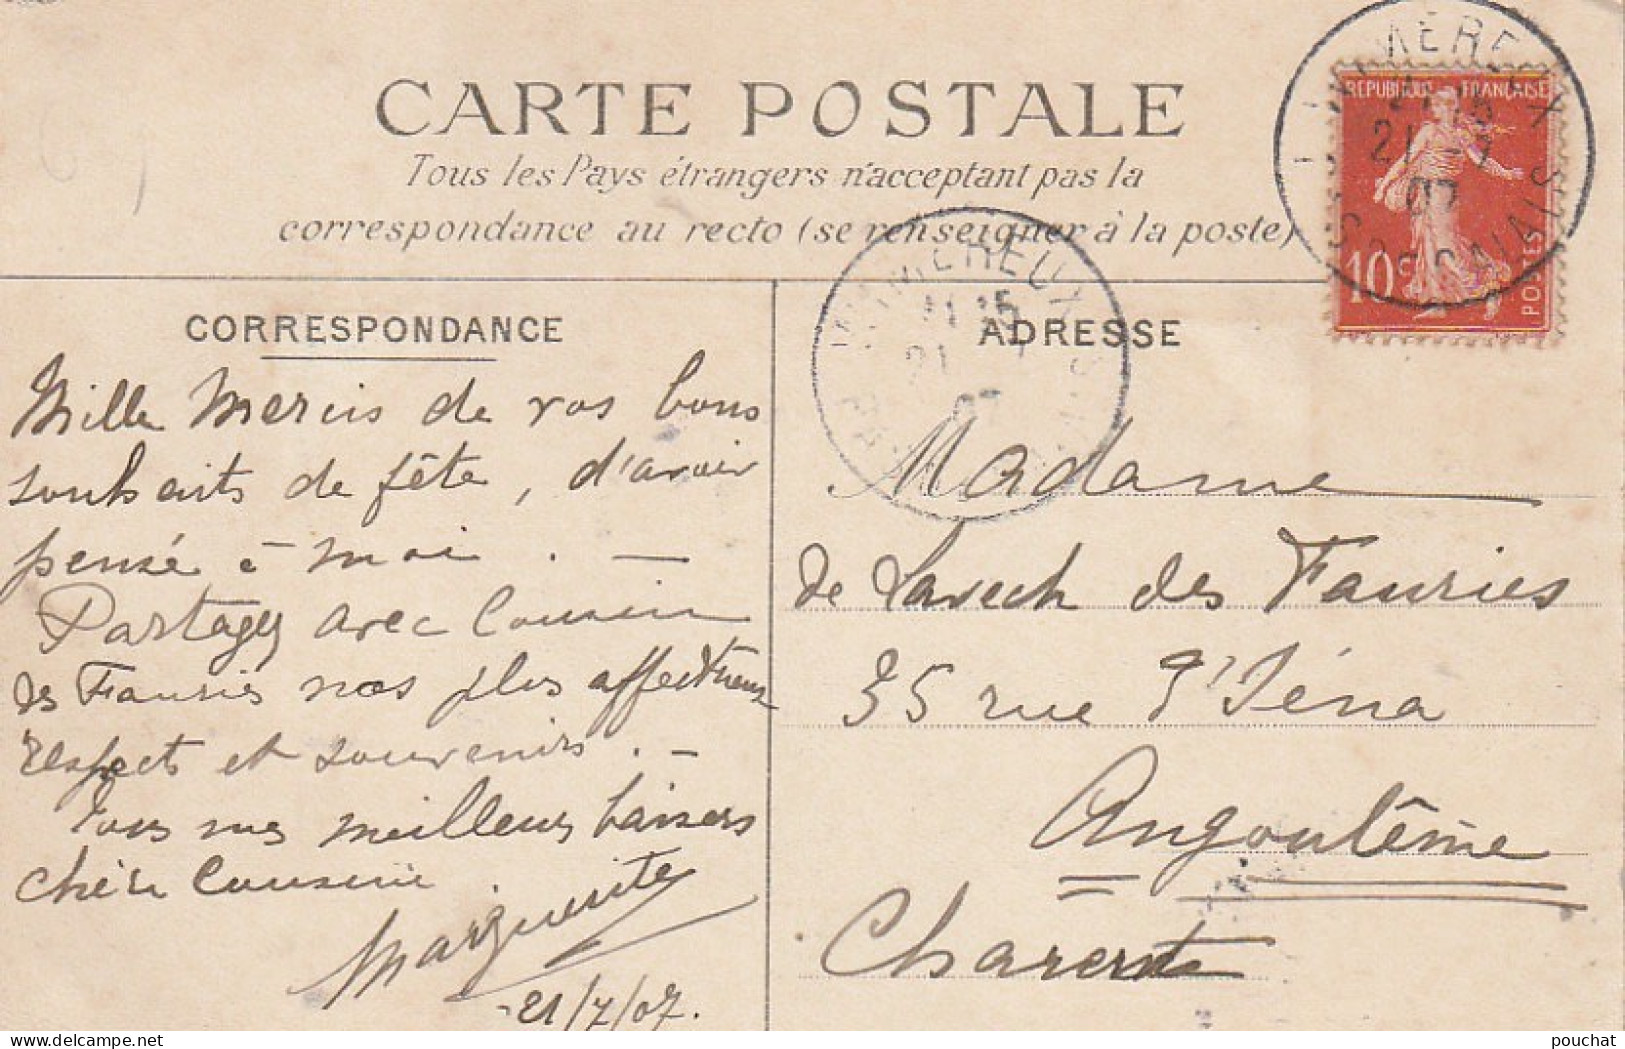 CARTE POSTALE
Tous les Pays étrangers n'acceptant pas la
correspondance au recto (se renseigner à la poste)
CORRESPONDANCE
Mille Mercis de vos bons
souhaits de fête, d'avoir
pensé à moi . —
Partagez avec Cousin
des Fauries nos plus affectueux
respects et souvenirs . —
Tous mes meilleurs baisers
chère Cousine
Marguerite
21/7/07.
ADRESSE
Madame
de Lavech des Fauries
35 rue d'Iéna
Angoulême
Charente
REPUBLIQUE FRANÇAISE
10c
POSTES
WIMEREUX
21 -7
07
PAS-DE-CALAIS
WIMEREUX
11 15
21
07
pouchat